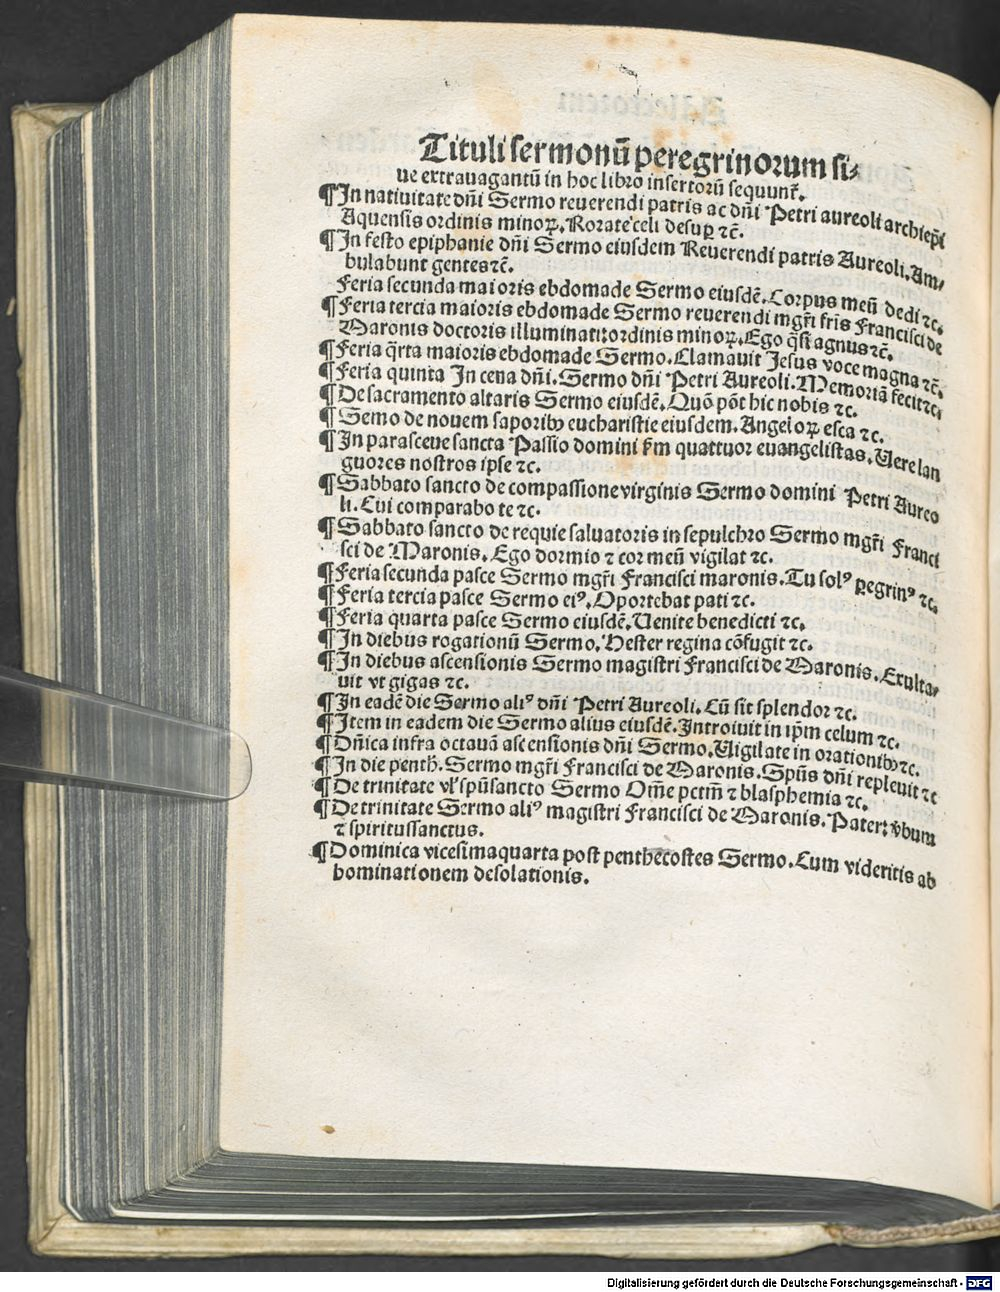 Tituli sermonū peregrinorum si⸗
ue extrauagantū in hoc libro insertorū sequunt̃.
¶ In natiuitate dñi Sermo reuerendi patris ac dñi Petri aureoli archiep̃i
Aquensis ordinis minoꝝ. Rorate celi desuꝑ ⁊c̃.
¶ In festo epiphanie dñi Sermo eiusdem Reuerendi patris Aureoli. Am⸗
bulabunt gentes ⁊c̃.
Feria secunda maioris ebdomade Sermo eiusdē. Corpus meū dedi ⁊c.
¶ Feria tercia maioris ebdomade Sermo reuerendi mgr̃i fr̃is Francisci de
Maronis doctoris illuminati: ordinis minoꝝ. Ego q̃si agnus ⁊c̃.
¶ Feria q̃rta maioris ebdomade Sermo. Clamauit Jesus voce magna ⁊c̃.
¶ Feria quinta In cena dñi. Sermo dñi Petri Aureoli. Memoriā fecit ⁊c.
¶ De sacramento altaris Sermo eiusdē. Quō pōt hic nobis ⁊c.
¶ Semo de nouem saporibꝰ eucharistie eiusdem. Angeloꝝ esca ⁊c.
¶ In parasceue sancta Passio domini ẜm quattuor euangelistas. Uere lan
guores nostros ipse ⁊c.
¶ Sabbato sancto de compassione virginis Sermo domini Petri Aureo
li. Cui comparabo te ⁊c.
¶ Sabbato sancto de requie saluatoris in sepulchro Sermo mgr̃i Franci
sci de Maronis. Ego dormio ⁊ cor meū vigilat ⁊c.
¶ Feria secunda pasce Sermo mgr̃i Francisci maronis. Tu solꝰ ꝑegrinꝰ ⁊c.
¶ Feria tercia pasce Sermo eiꝰ. Oportebat pati ⁊c.
¶ Feria quarta pasce Sermo eiusdē. Uenite benedicti ⁊c.
¶ In diebus rogationū Sermo. Hester regina cōfugit ⁊c.
¶ In diebus ascensionis Sermo magistri Francisci de Maronis. Exulta⸗
uit vt gigas ⁊c.
¶ In eadē die Sermo aliꝰ dñi Petri Aureoli. Cū sit splendor ⁊c.
¶ Item in eadem die Sermo alius eiusdē. Introiuit in ip̃m celum ⁊c.
¶ Dñica infra octauā ascensionis dñi Sermo. Uigilate in orationibꝰ ⁊c.
¶ In die penth. Sermo mgr̃i Francisci de Maronis. Spūs dñi repleuit ⁊c
¶ De trinitate vl̓ spūsancto Sermo Om̄e pctm̄ ⁊ blasphemia ⁊c.
¶ De trinitate Sermo aliꝰ magistri Francisci de Maronis. Pater: v̓bum
⁊ spiritussanctus.
¶ Dominica vicesimaquarta post penthecostes Sermo. Cum videritis ab
bominationem desolationis.
Digitalisierung gefördert durch die Deutsche Forschungsgemeinschaft - DFG